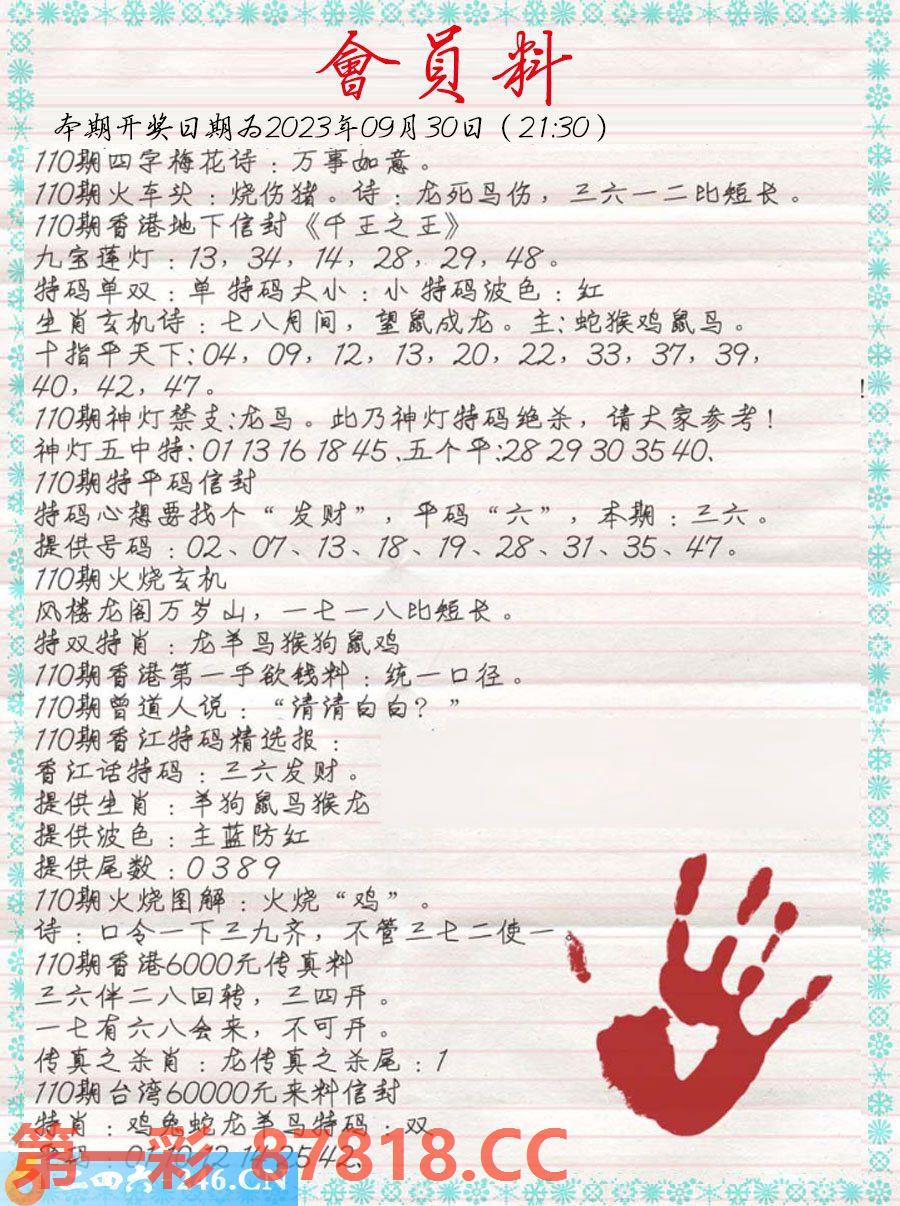 會員料
本期开奖日期为2023年09月30日（21:30）
110期四字梅花诗：万事如意。
110期火车头：烧伤猪。诗：龙死鸟伤，三六一二比短长。
110期香港地下信封《千王之王》
九宝莲灯：13，34，14，28，29，48。
特码单双：单 特码大小：小 特码波色：红
生肖玄机诗：七八月间，望鼠成龙。主：蛇猴鸡鼠鸟。
十指平天下：04，09，12，13，20，22，33，37，39，
40，42，47。
!
110期神灯禁支:龙鸟。此乃神灯特码绝杀，请大家参考！
神灯五中特：01 13 16 18 45 、五个平:28 29 30 35 40、
110期特平码信封
特码心想要找个“发财”，平码“六”，本期：三六。
提供号码：02、07、13、18、19、28、31、35、47。
110期火烧玄机
风楼龙阁万岁山，一七一八比短长。
特双特肖：龙羊鸟猴狗鼠鸡
110期香港第一手欲钱料：统一口径。
110期曾道人说：“清清白白？”
110期香江特码精选报：
香江话特码：三六发财。
提供生肖：羊狗鼠鸟猴龙
提供波色：主蓝防红
提供尾数：0 3 8 9
110期火烧图解：火烧“鸡”。
诗：口令一下三九齐，不管三七二使一。
110期香港6000元传真料
三六伴二八回转，三四开。
一七有六八会来，不可开。
传真之杀肖：龙传真之杀尾：1
110期台湾60000元来料信封
特肖：鸡兔蛇龙羊鸟特码：双
第一彩 87818.CC
二四六 246.CN